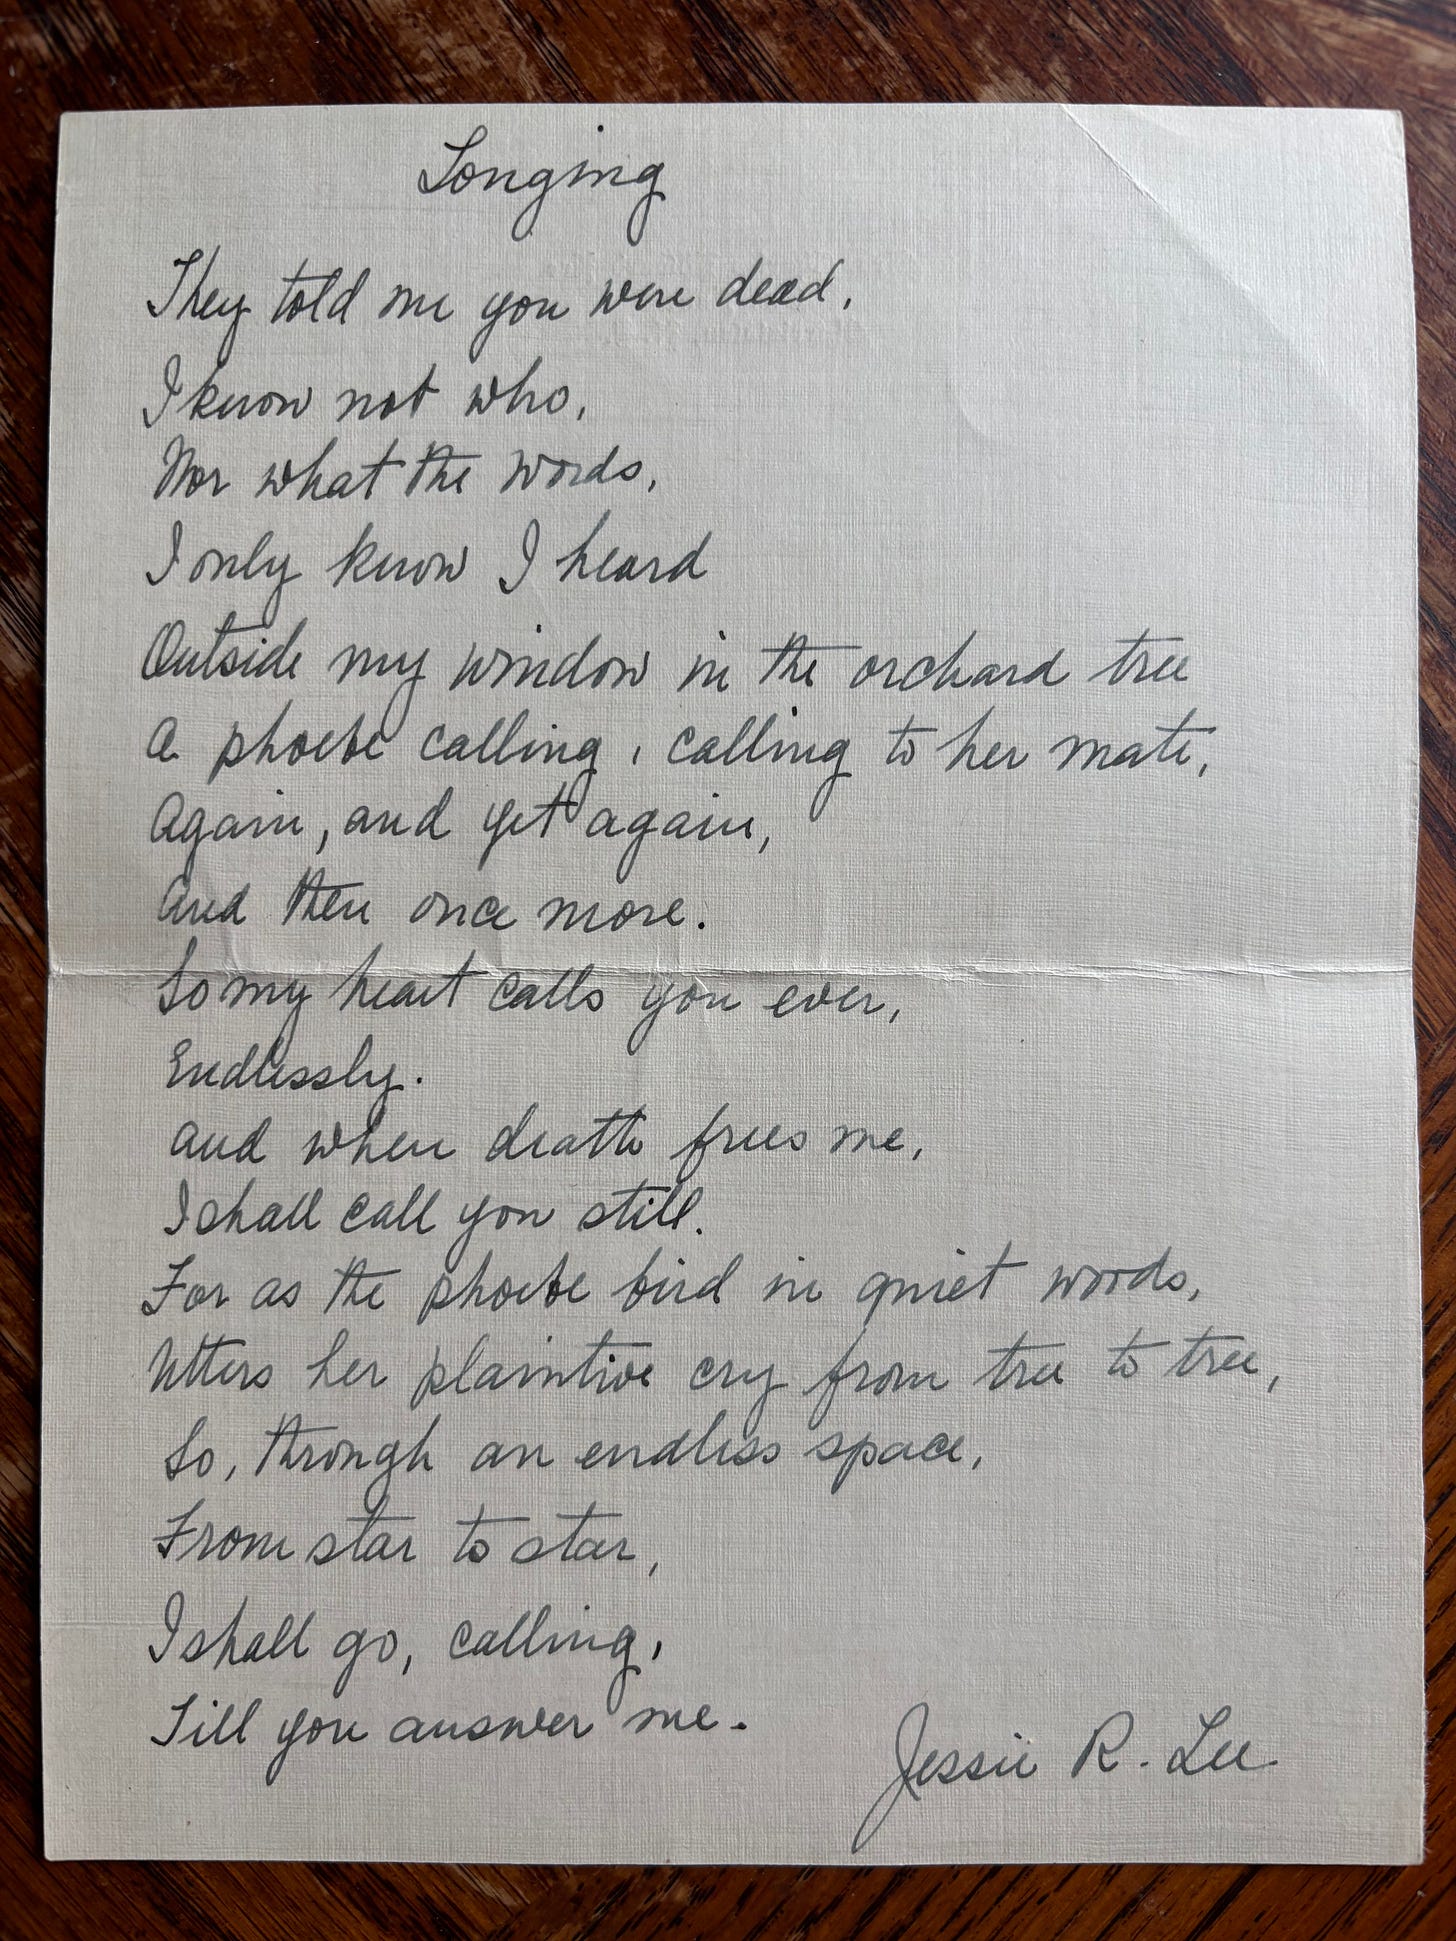 Longing
They told me you were dead,
I know not who,
Nor what the words,
I only know I heard
Outside my window in the orchard tree
A phoebe calling, calling to her mate,
Again, and yet again,
And then once more.
So my heart calls you ever,
Endlessly.
And when death frees me,
I shall call you still.
For as the phoebe bird in quiet words,
Utters her plaintive cry from tree to tree,
So, through an endless space,
From star to star,
I shall go, calling,
Till you answer me.
Jessie R. Lee